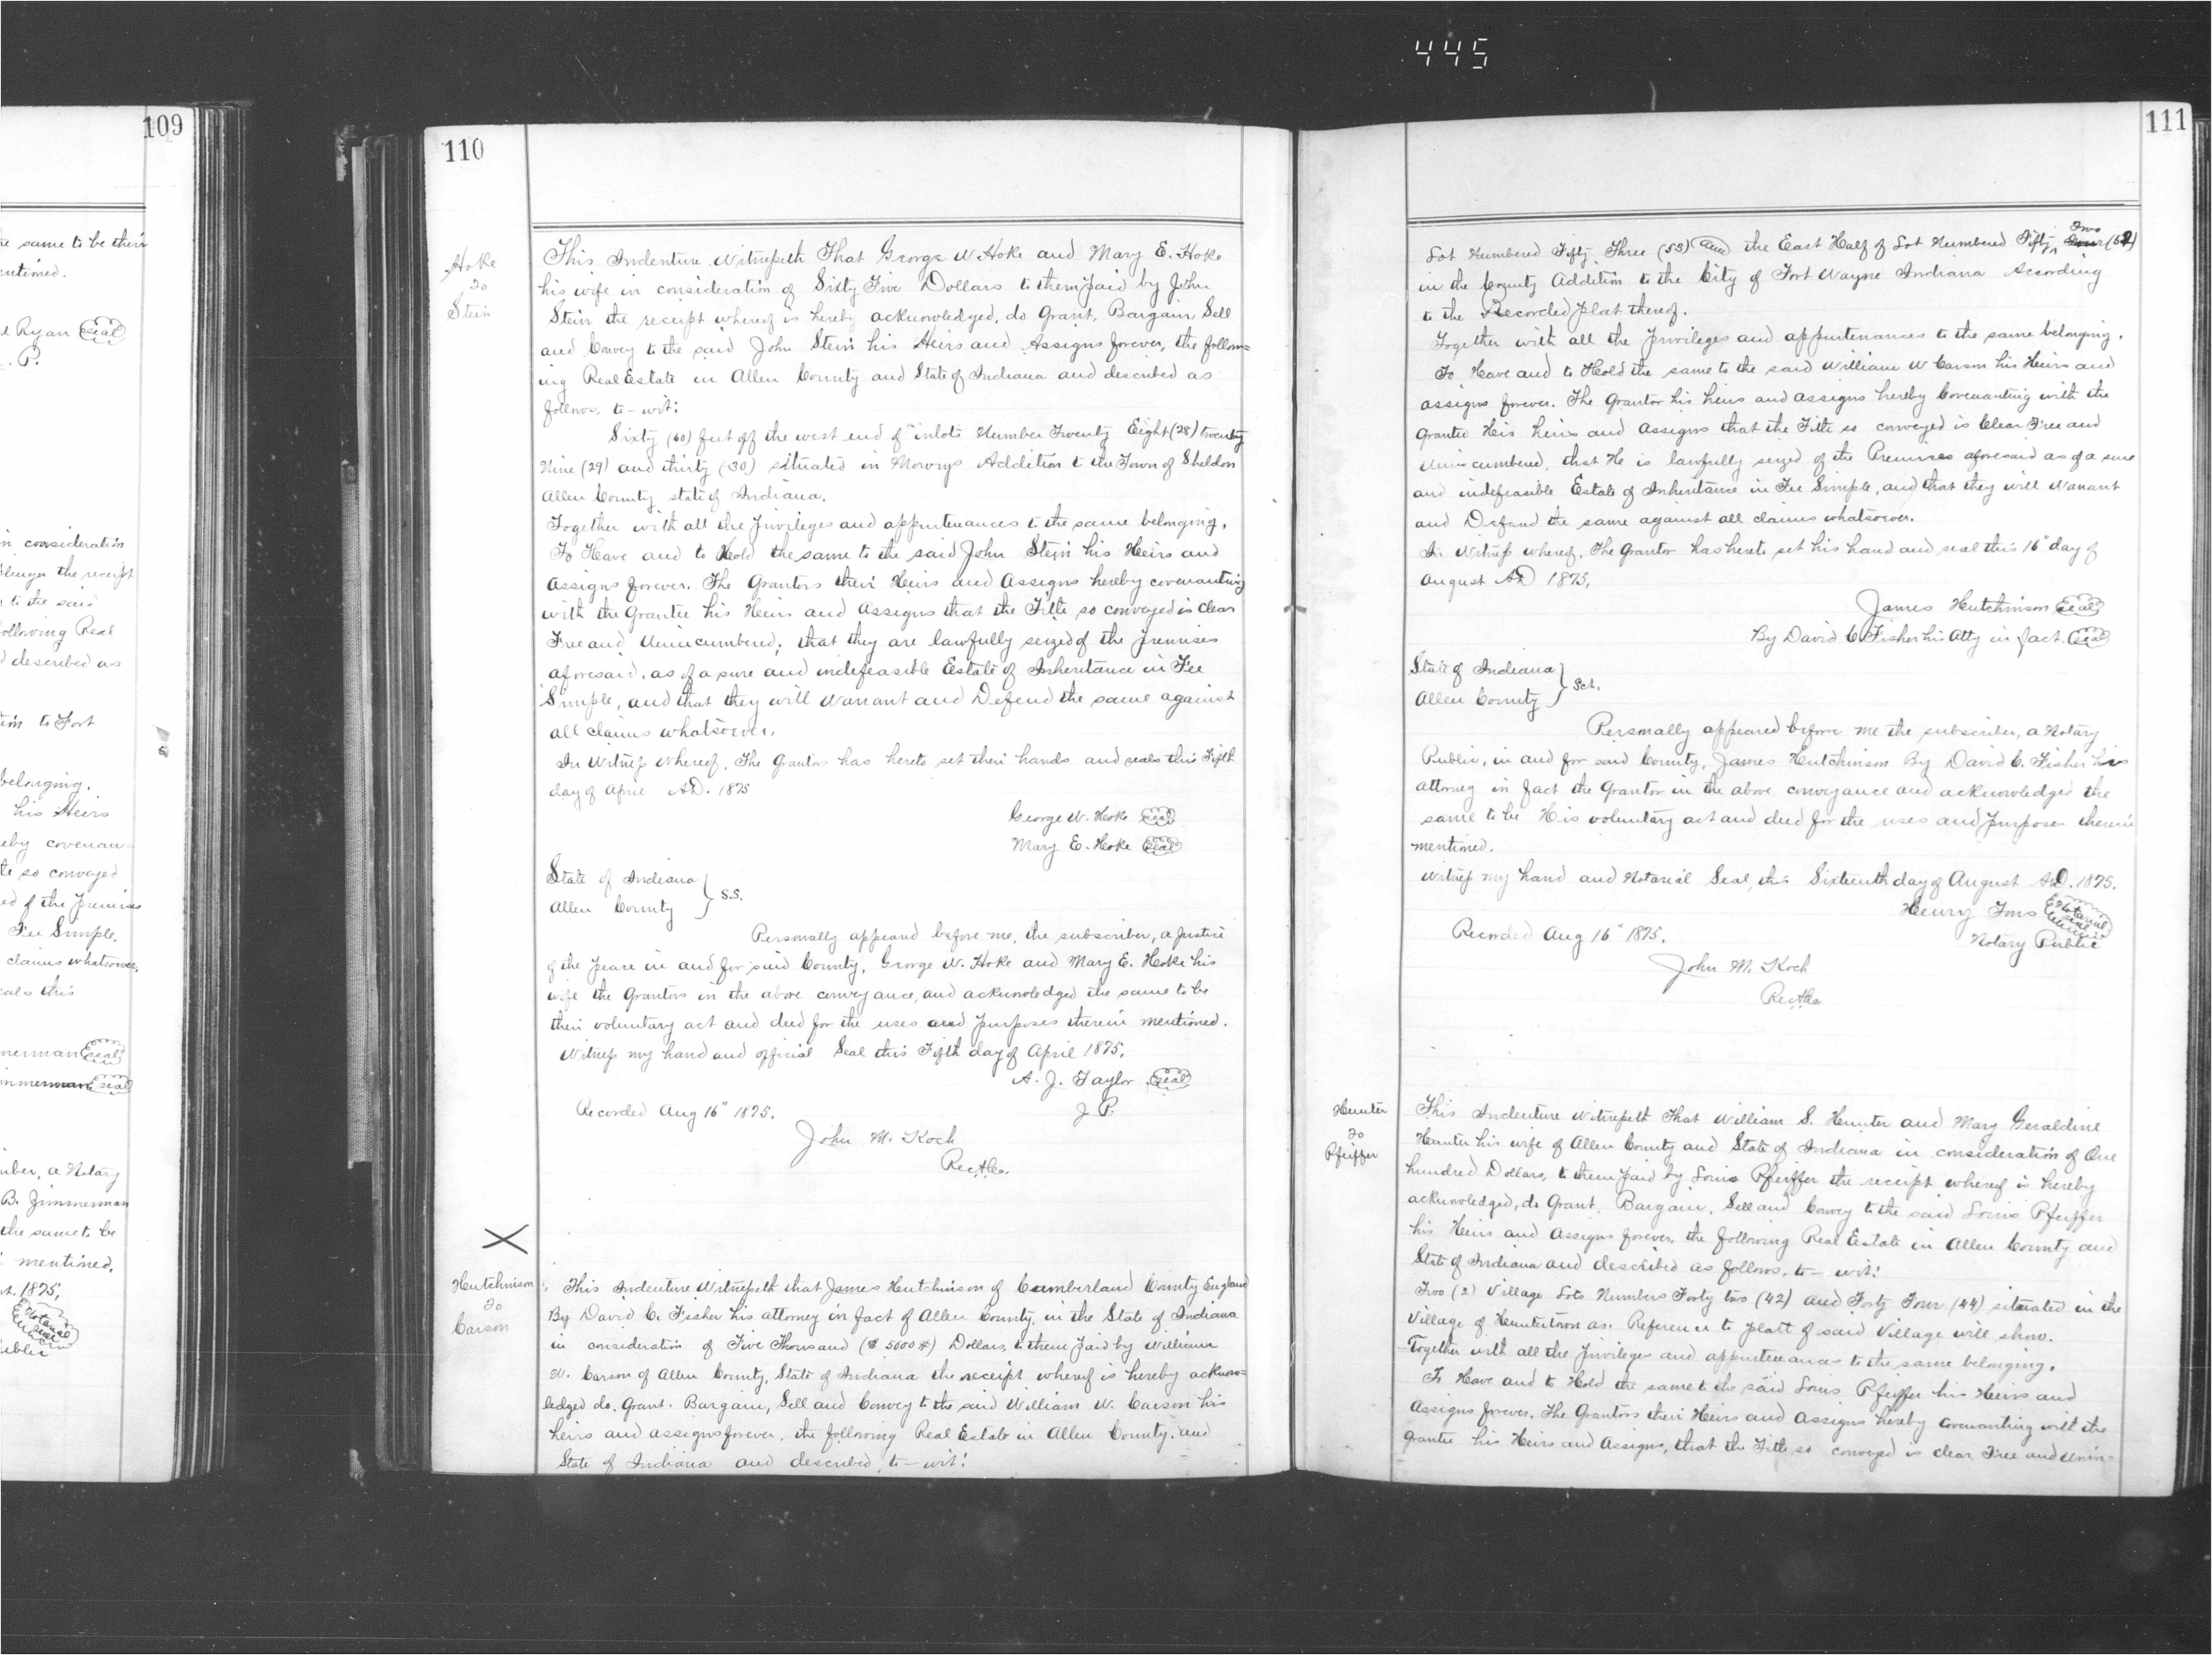 445
109
e same to be their
entioned.
e Ryan seal
. P.
n consideration
linger the receipt
to the said
following Real
described as
tion to Fort
belonging.
his Heirs
eby covenan-
te so conveyed
ed of the Premises
Fee Simple,
claims whatsoever,
eals this
merman seal
mmerman seal
iber, a Notary
B. Zimmerman
the same to be
mentioned.
st. 1875,
Notarial
seal
ublic
110
Hoke
To
Stein
This Indenture Witnesseth That George W. Hoke and Mary E. Hoke
his wife in consideration of Sixty Five Dollars to them paid by John
Stein the receipt whereof is hereby acknowledged, do Grant, Bargain Sell
and Convey to the said John Stein his Heirs and Assigns forever, the follow=
ing Real Estate in Allen County and State of Indiana and described as
follows, to-wit:
Sixty (60) feet off the west end of inlots Number Twenty Eight (28) twenty
Nine (29) and thirty (30) situated in Mowrys Addition to the Town of Sheldon
Allen County state of Indiana.
Together with all the Privileges and appurtenances to the same belonging.
To Have and to Hold the same to the said John Stein his Heirs and
Assigns forever. The Grantors their Heirs and Assigns hereby covenanting
with the Grantee his Heirs and Assigns that the Title so conveyed is Clear
Free and Unincumbered; that they are lawfully seized of the premises
aforesaid, as of a sure and indefeasible Estate of Inheritance in Fee
Simple, and that they will Warrant and Defend the same against
all claims whatsoever.
In Witness Whereof, The Grantors has hereto set their hands and seals this Fifth
day of April AD. 1875
George W. Hoke seal
Mary E. Hoke seal
State of Indiana
Allen County } S.S.
Personally appeared before me, the subscriber, a Justice
of the Peace in and for said County, George W. Hoke and Mary E. Hoke his
wife the Grantors in the above conveyance, and acknowledged the same to be
their voluntary act and deed for the uses and purposes therein mentioned.
Witness my hand and official Seal this Fifth day of April 1875.
A. J. Taylor seal
J. P.
Recorded Aug 16" 1875.
John M. Koch
R.e.c.A.Co.
X
Hutchinson
To
Carson
This Indenture Witnesseth that James Hutchinson of Cumberland County England
By David C. Fisher his attorney in fact of Allen County, in the State of Indiana
in consideration of Five Thousand ($ 5000 #) Dollars, to them paid by William
W. Carson of Allen County, State of Indiana the receipt whereof is hereby acknow=
ledged do. Grant. Bargain, Sell and Convey to the said William W. Carson his
heirs and assigns forever, the following Real Estate in Allen County, and
State of Indiana and described, to-wit:
111
Lot Numbered Fifty Three (53) and the East Half of Lot Numbered Fifty Two (52)
in the County Addition to the City of Fort Wayne Indiana According
to the Recorded plat thereof.
Together with all the Privileges and appurtenances to the same belonging.
To Have and to Hold the same to the said William W Carson his Heirs and
assigns forever. The Grantor his heirs and assigns hereby Covenanting with the
Grantee His heirs and Assigns that the Title so conveyed is Clear Free and
Unincumbered, that He is lawfully seized of the Premises aforesaid as of a sure
and indefeasible Estate of Inheritance in Fee Simple, and that they will Warrant
and Defend the same against all claims whatsoever.
In Witness whereof, The Grantor has hereto set his hand and seal this 16" day of
August AD 1875,
James Hutchinson seal
By David C. Fisher his Atty in fact. seal
State of Indiana
Allen County } Sct.
Personally appeared before me the subscriber, a Notary
Public, in and for said County, James Hutchinson By David C. Fisher his
attorney in fact the Grantor in the above conveyance and acknowledged the
same to be His voluntary act and deed for the uses and purposes therein
mentioned.
Witness my hand and Notarial Seal, this Sixteenth day of August AD. 1875.
Henry Notarial
seal
Notary Public
Recorded Aug 16" 1875.
John M. Koch
R.e.c.A.Co
Hunter
To
Pfeiffer
This Indenture Witnesseth That William S. Hunter and Mary Geraldine
Hunter his wife of Allen County and State of Indiana in consideration of One
hundred Dollars, to them paid by Louis Pfeiffer the receipt whereof is hereby
acknowledged, do Grant, Bargain, Sell and Convey to the said Louis Pfeiffer
his Heirs and Assigns forever, the following Real Estate in Allen County and
State of Indiana and described as follows, to-wit:
Two (2) Village Lots Numbers Forty two (42) and Forty Four (44) situated in the
Village of Huntertown as. Reference to platt of said Village will show.
Together with all the Privileges and appurtenances to the same belonging.
To Have and to Hold the same to the said Louis Pfeiffer his Heirs and
Assigns forever. The Grantors their Heirs and Assigns hereby covenanting with the
grantee his Heirs and Assigns, that the Title so conveyed is clear, Free and Unin=